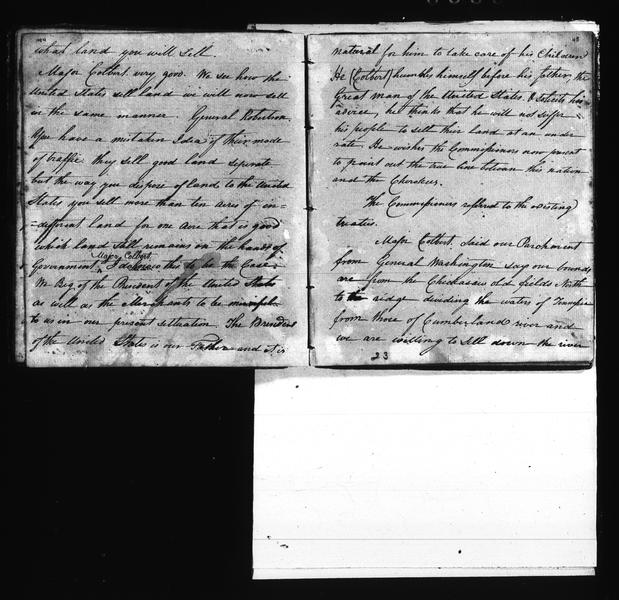 what land you will sell.
Major Colbert. very good. We see how the
United States sell land we will now sell
in the same manner. General Robertson.
You have a mistaken Idea of their mode
of traffic. they sell good land seperate
but the way you dispose of land to the United
States you sell more than ten acres of in-
-different land for one Acre that is good
which land still remains in the hands of
Government, Major Colbert, I do know this to be the Case
We Beg of the President of the United States
as well as the Merchants to be
to us in our present settuation. The President
of the United States is our Father and it is
48
natural for him to take care of his Children
He (Colbert) humbles himself before his father, the
Great man of the United States, & solicits his
advice, he thinks that he will not suffer
his people to sell their land at an under
rate. He wishes the Commissioners now present
to point out the true line between his nation
and the Cherokees.
The Commissioners reffered to the existing
treaties.
Major Colbert. said our Parchment
from General Washington say our bounds
are from the Chickasaw old fields North
to the ridge deviding the waters of Tennessee
from those of Cumberland river and
we are willing to sell down the river
23